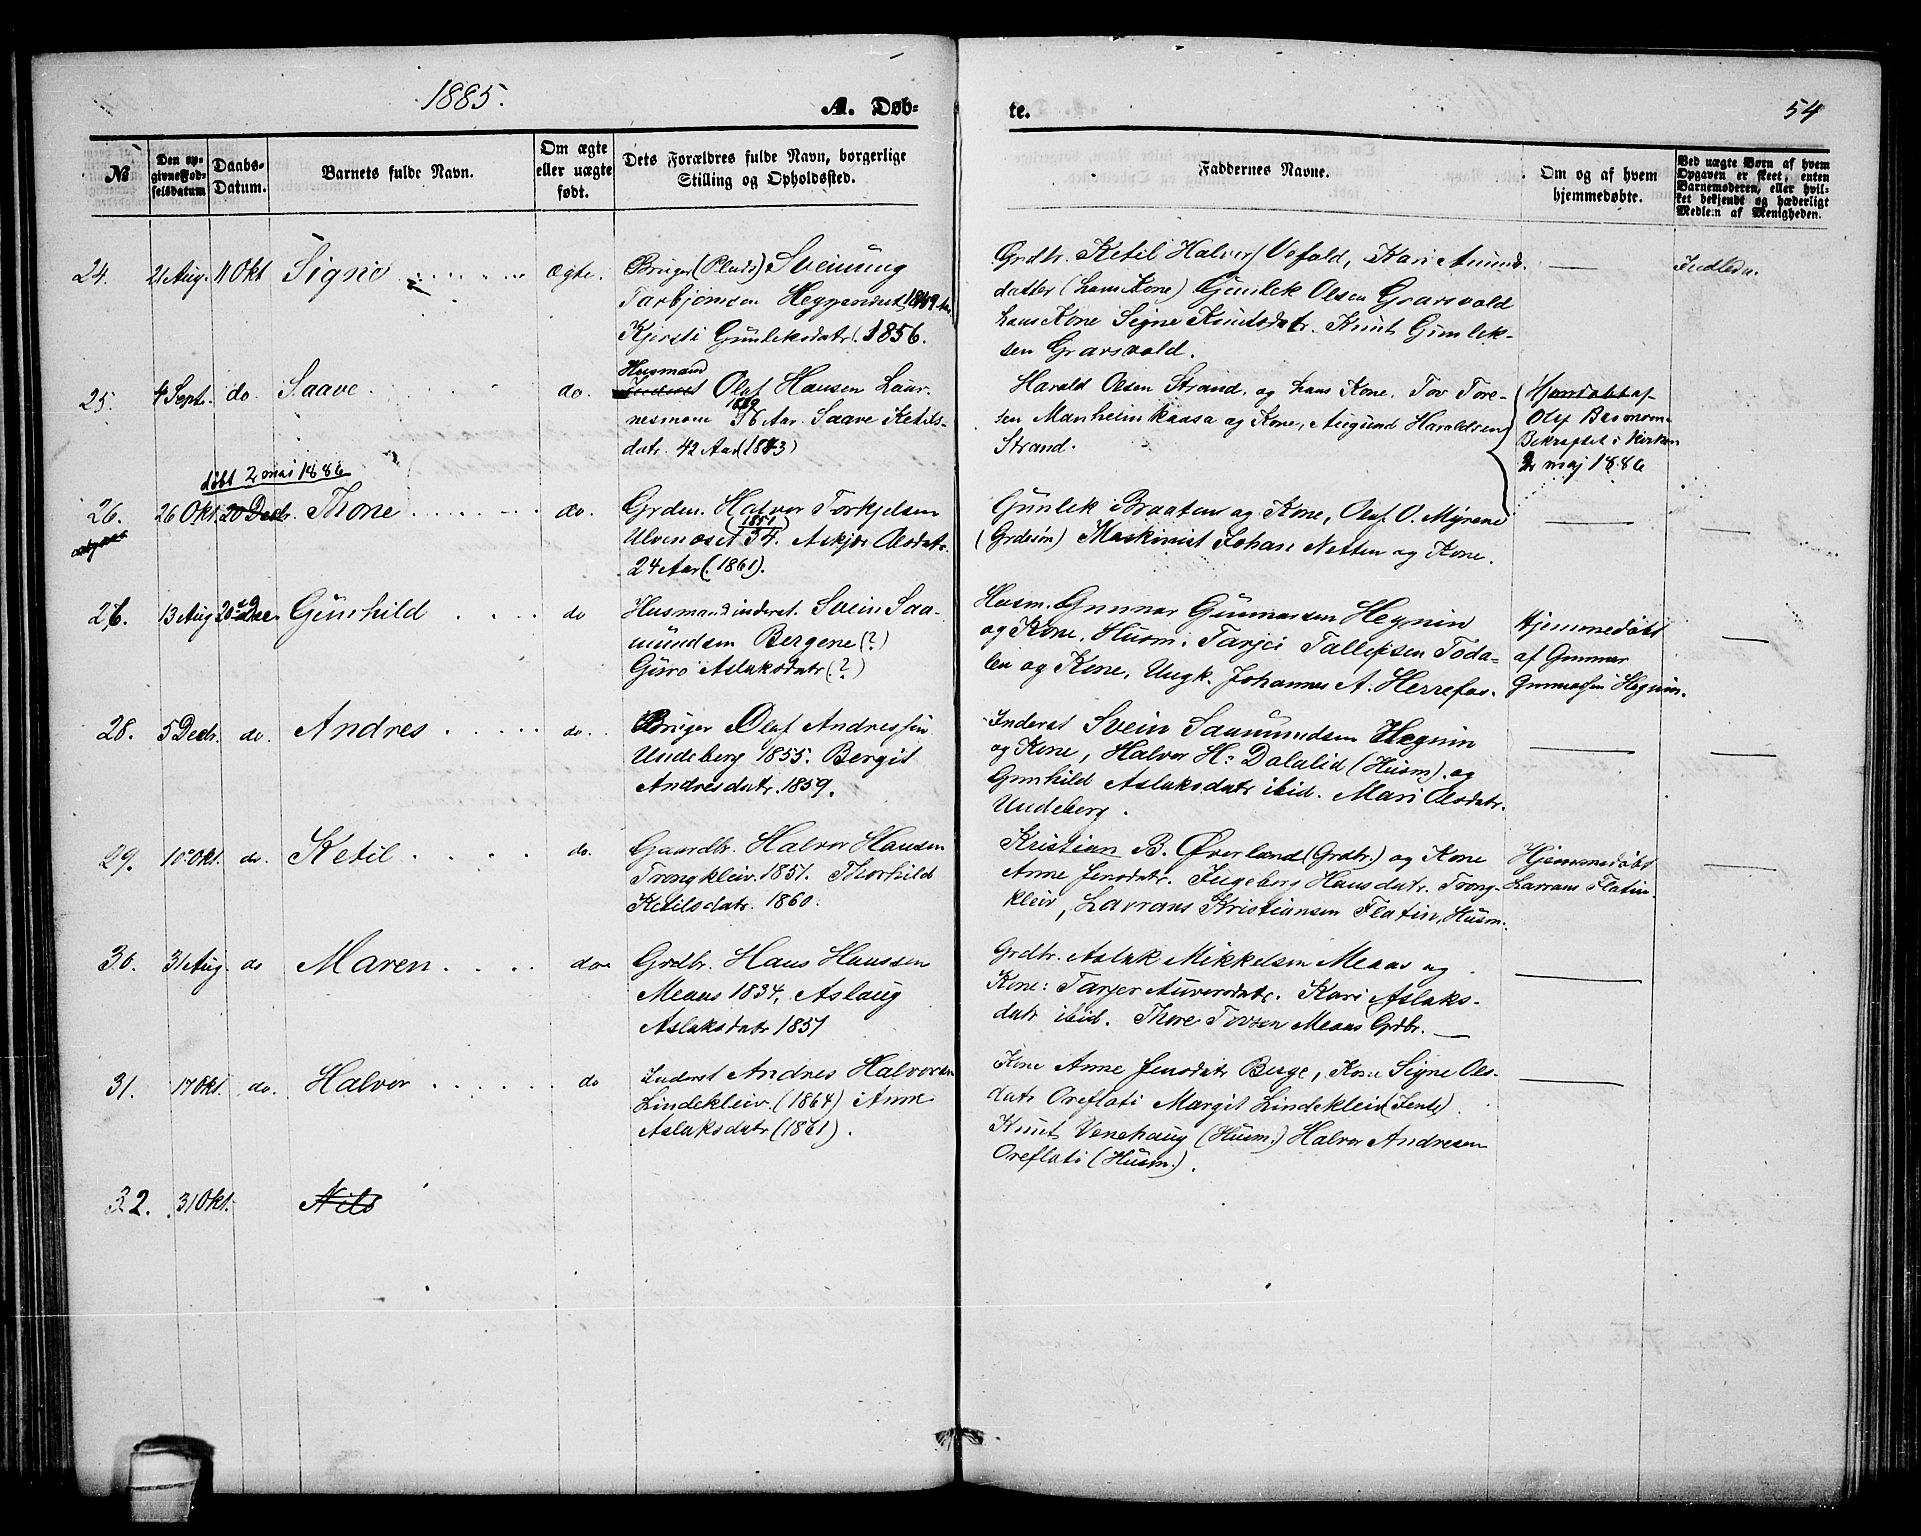 1885.
A. Døb-
te.
54
№
Den op-
givne Fød-
selsdatum
Daabs-
Datum.
Barnets fulde Navn.
Om ægte
eller uægte
født.
Dets Forældres fulde Navn, borgerlige
Stilling og Opholdssted.
Faddernes Navne.
Om og af hvem
hjemmedøbte.
Ved uægte Børn af hvem
Opgaven er skeet, enten
Barnemoderen, eller hvil-
ket bekjendt og hæderligt
Medlem af Menigheden.
24.
21 Aug.
11 Okt
Signe
ægte.
Bruger (Plads) Sveinung
Tarbjørnsen
Kjersti Gunleksdatr. 1856.
Grdbr. Ketil Halvors Vefald, Kari Amunds
datter (hans Kone) Gunlek Olsen Grarsvold
hans Kone Signe Knutsdatr. Knut Gunlek-
sen Grarsvold.
25.
4 Sept.
do.
Saave
do.
Husmand
Inderst Olaf Hansen Laar-
nesmoen 56 Aar. Saave Ketils-
datr. 42 Aar (1843)
Harald Olsen Strand, og hans Kone, Tov Tore-
sen Manheimkaasa og Kone, Augund Haraldsen
Strand.
Hjemdøbt af
Olef
Bekræftet i Kirken
2 maj 1886
døbt 2 mai 1886
26.
26 Okt.
20 Decbr.
Thone
do.
Grdm. Halvor Torkjelsen
1851
Ulvenoset 34. Askjær Olsdatr.
24 Aar (1861).
Gunlek Braaten og Kone, Oluf O. Myrene
(Grdesøn) Maskinist Johan Netten og Kone.
26.
13 Aug
20de Dec.
Gunhild
do
Husmand inderst. Svein Saa-
mundsen Bergene (?)
Guro Aslaksdatr (?)
Husm. Gunnar Gunnarsen Hegnin
og Kone, Husm. Tarjei Tallefsen Toda-
len og Kone, Ungk. Johannes A. Herrefos.
Hjemmedøbt
af Gunnar
Gunnarsen Hegnin.
28.
5 Decbr.
do.
Andres
do.
Bruger Olaf Andressen
Undeberg 1855. Bergit
Andresdatr. 1859.
Inderst Svein Saamundsen Hegnin
og Kone, Halvor H: Dalalid (Husm). og
Gunhild Aslaksdatr ibid. Mari Olsdatr.
Undeberg.
29.
10 Okt.
do.
Ketil
do.
Gaardbr. Halvor Hansen
Trongkleiv. 1851. Thorhild
Ketilsdatr. 1860.
Kristian B. Øverland (Grdbr.) og Kone
Anne Jensdatr. Ingeborg Hansdatr. Trong-
kleiv, Lavrans Kristiansen Flatin, Husm.
Hjemmedøbt
Lavrans Flatin.
30.
31 Aug.
do
Maren
do
Grdbr. Hans Hanssen
Meaas 1834, Aslaug
Aslaksdatr 1851
Grdbr. Aslak Mikkelsen Meaas og
Kone: Tarjer Auversdatr. Kari Aslaks-
datr ibid. Thore Tovsen Meaas Grdbr.
31.
17 Okt.
do.
Halvor
do
Inderst Andres Halvorsen
Lindekleiv. (1864) Anne
Aslaksdatr (1861).
Kone Anne Jensdatr Berge, Kone Signe Ols-
datr Oreflati Margit Lindekleiv (Jente).
Knut Venehaug (Husm.) Halvor Andresen
Oreflati (Husm.).
32.
31 Okt.
Nils